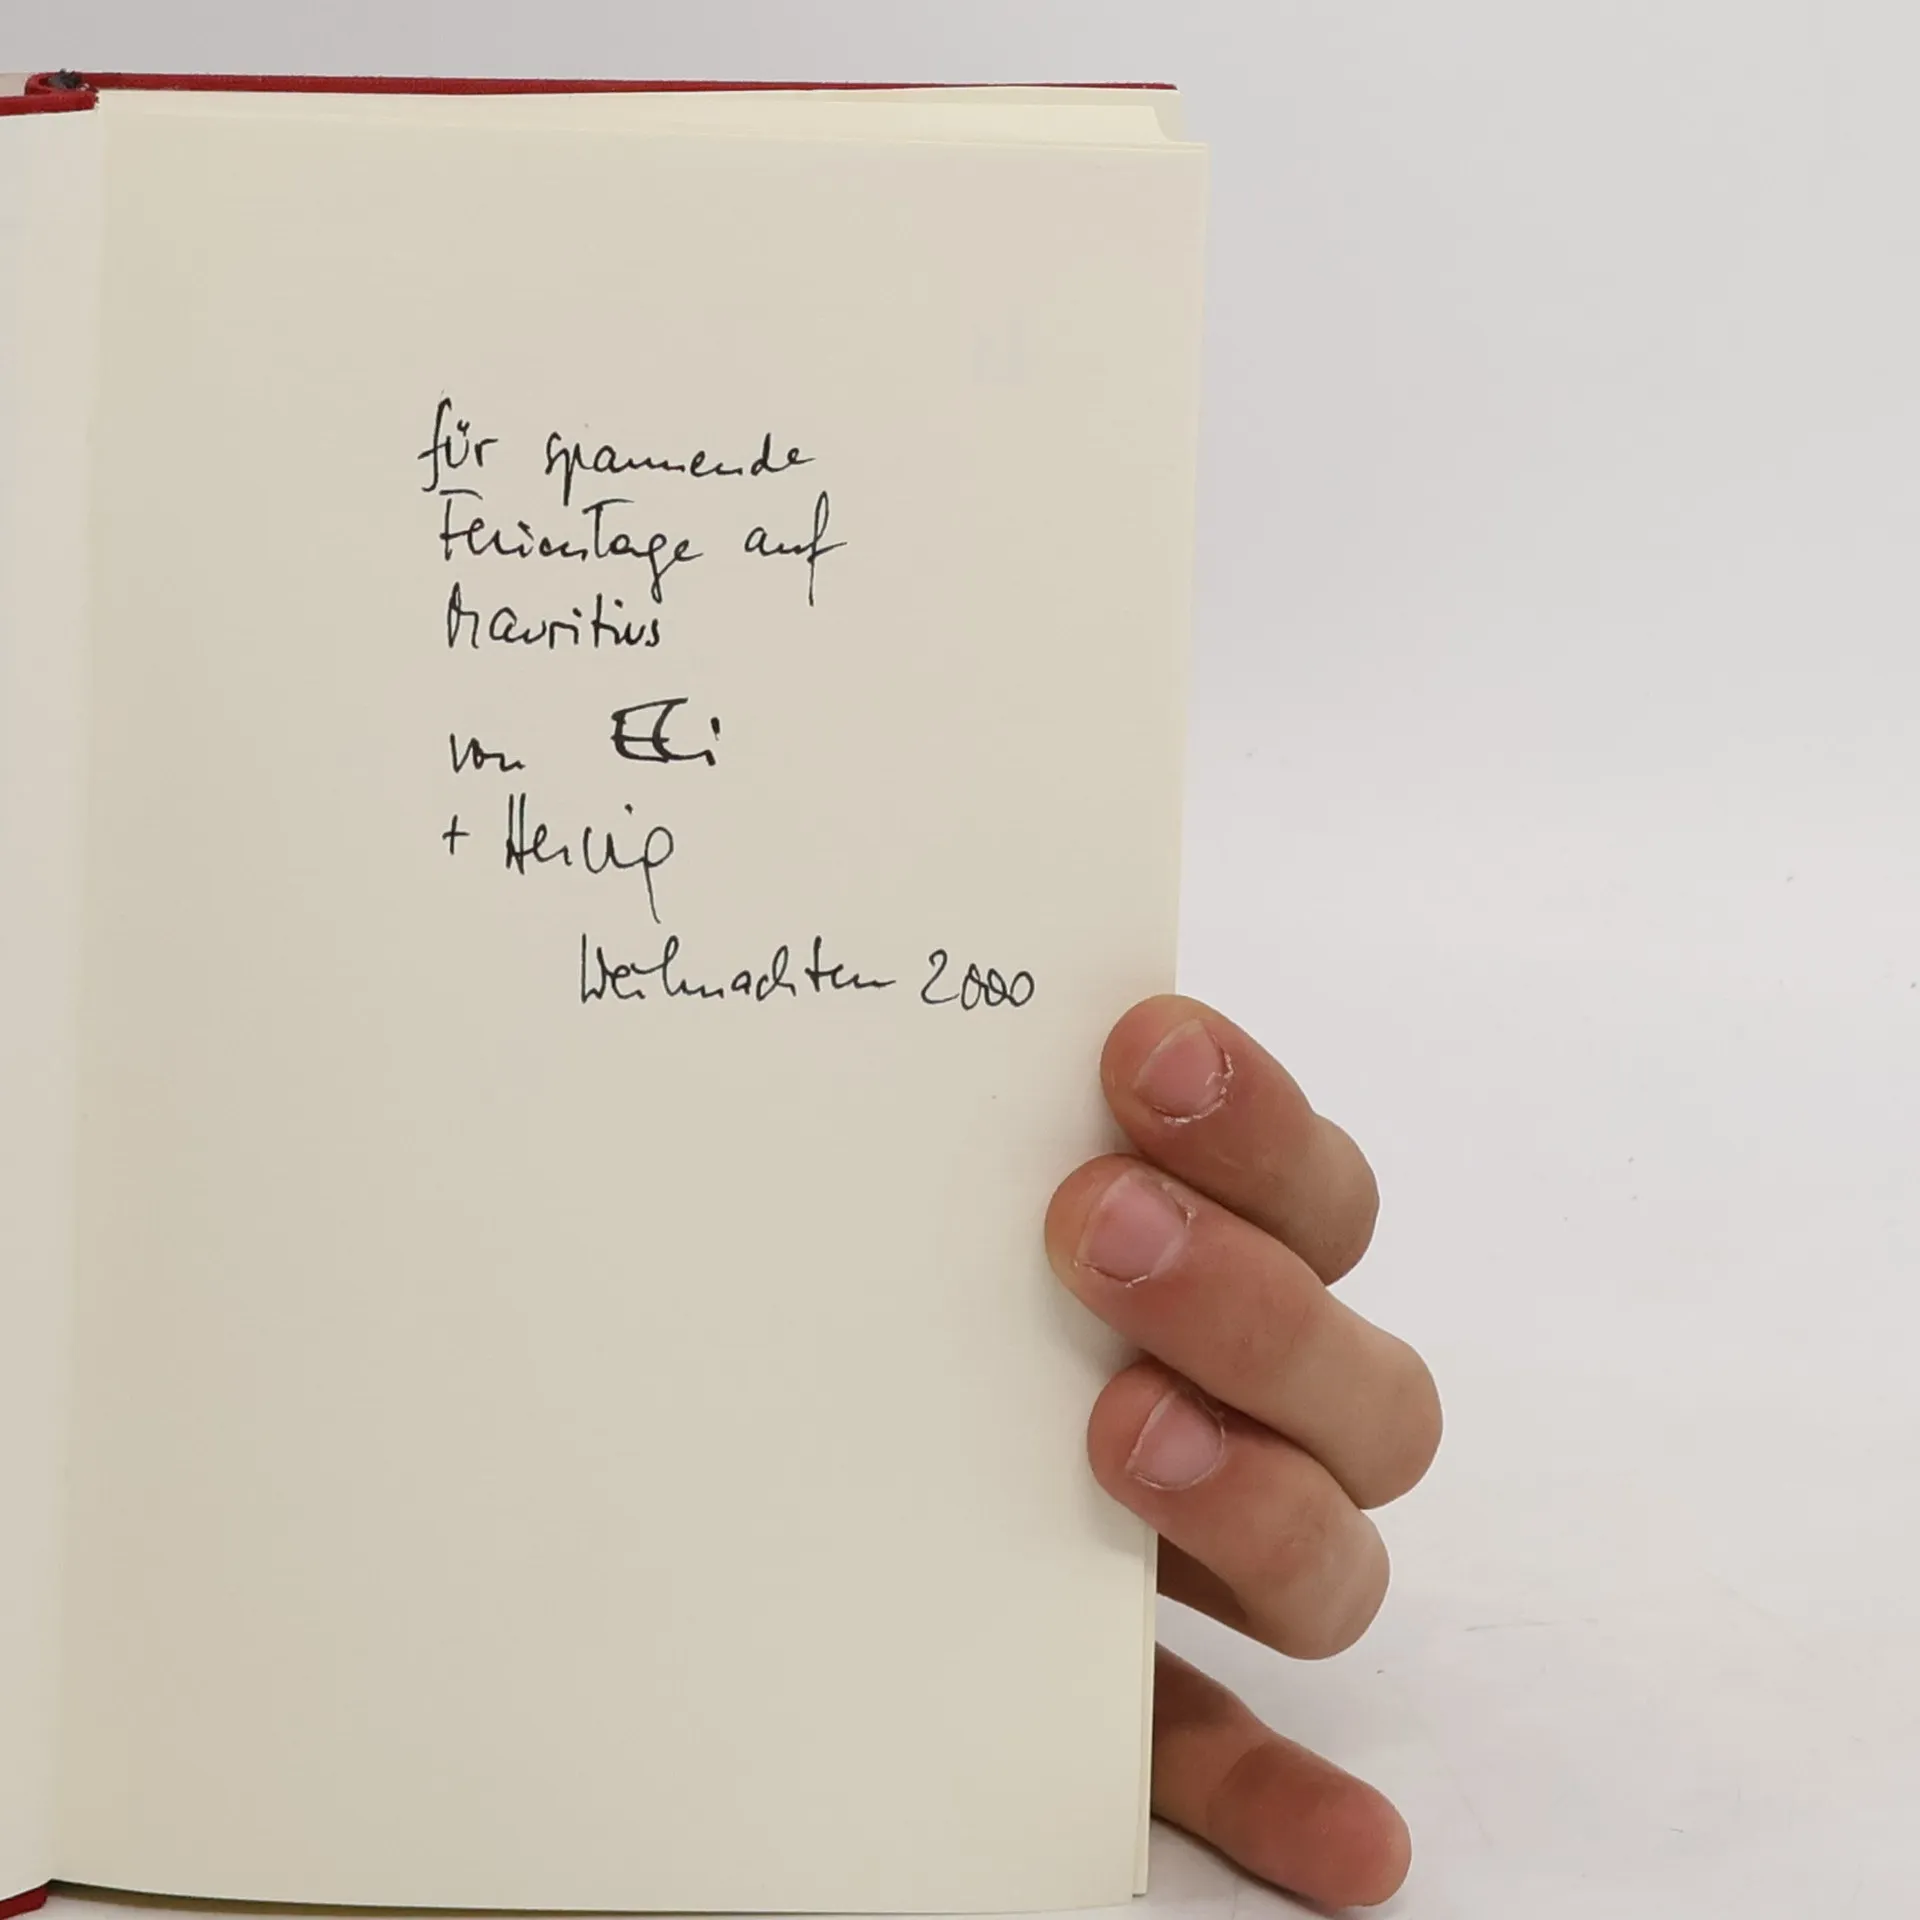 für spannende
Ferientage auf
Mauritius
von
+ Herwig
Weihnachten 2000